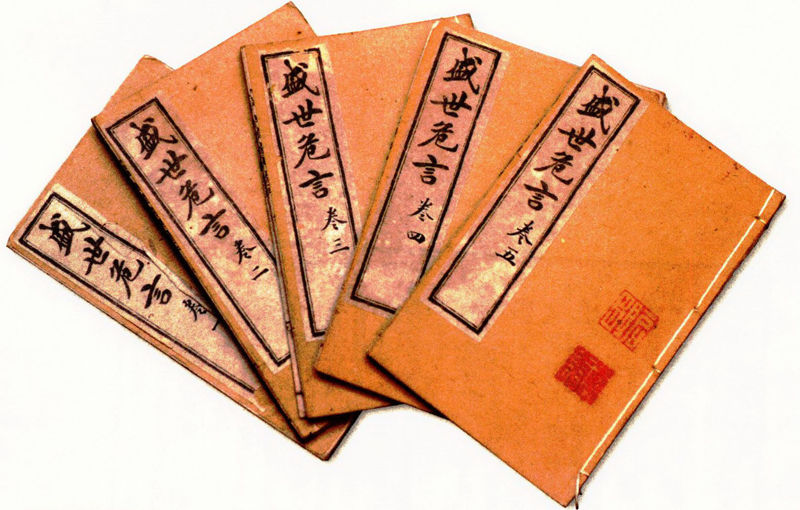 盛世危言 卷一
盛世危言 卷二
盛世危言 卷三
盛世危言 卷四
盛世危言 卷五